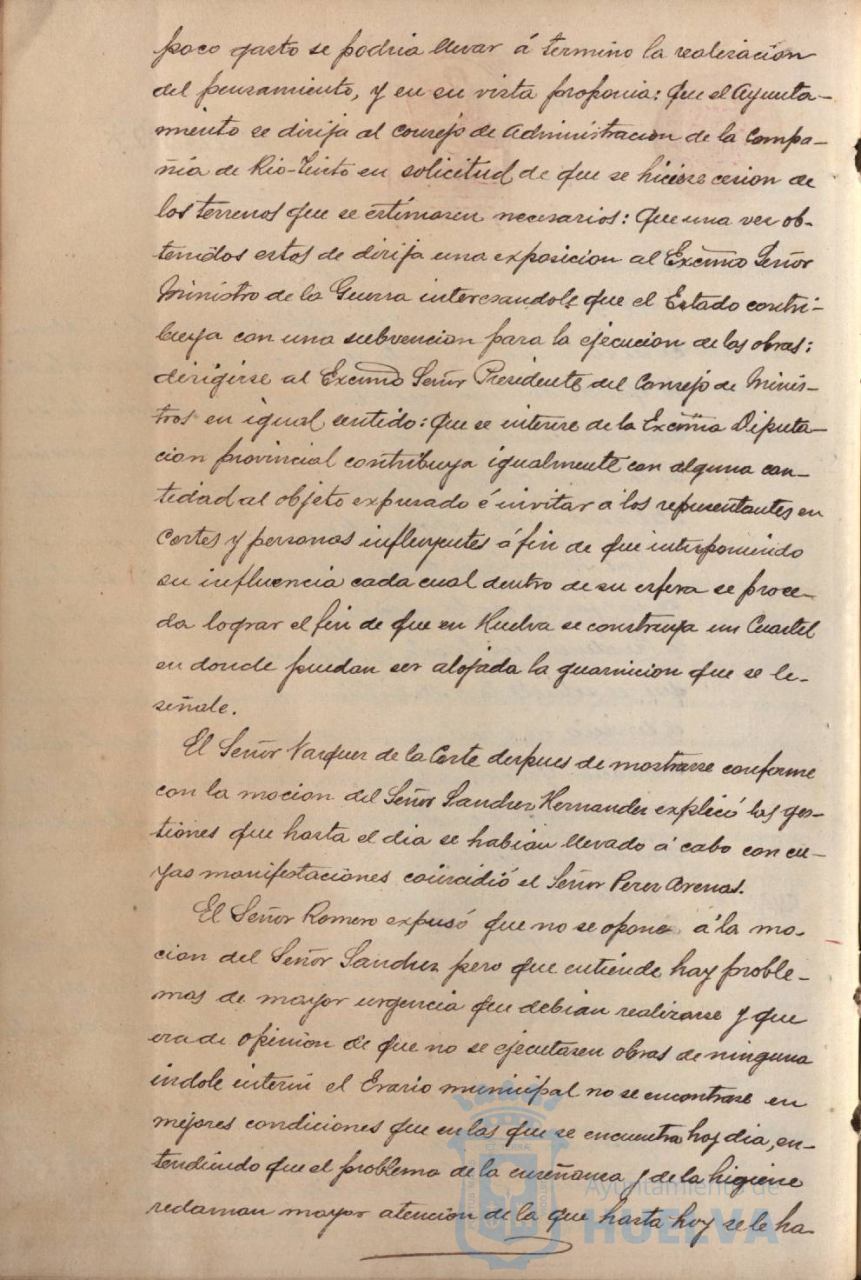 poco gasto se podria llevar á termino la realizacion
del pensamiento, y en su vista proponia: Que el Ayunta-
miento se dirija al consejo de Administracion de la Compa-
ñia de Rio-Tinto en solicitud de que se hiciese cesion de
los terrenos que se estimasen necesarios: Que una vez ob-
tenidos estos de dirija una exposicion al Excmo Señor
Ministro de la Guerra interesandole que el Estado contri-
buya con una subvencion para la ejecucion de las obras:
dirigirse al Excmo Señor Presidente del Consejo de Minis-
tros en igual sentido: Que se interese de la Excma Diputa-
cion provincial contribuya igualmente con alguna can-
tidad al objeto expresado é invitar a los representantes en
Cortes y personas influyentes á fin de que interponiendo
su influencia cada cual dentro de su esfera se proce-
da lograr el fin de que en Huelva se construya un Cuartel
en donde puedan ser alojada la guarnicion que se le
señale.
El Señor Vazquez de la Corte despues de mostrarse conforme
con la mocion del Señor Sanchez Hernandez explicó las ges-
tiones que hasta el dia se habian llevado á cabo con cu-
yas manifestaciones coincidió el Señor Perez Arenas.
El Señor Romero expusó que no se opone á la mo-
cion del Señor Sanchez pero que entiende hay proble-
mas de mayor urgencia que debian realizarse y que
era de opinion de que no se ejecutasen obras de ninguna
indole interin el Erario municipal no se encontrase en
mejores condiciones que en las que se encuentra hoy dia, en-
tendiendo que el problema de la enseñanza y de la higiene
reclaman mayor atencion de la que hasta hoy se le ha
Ayuntamiento de
HUELVA